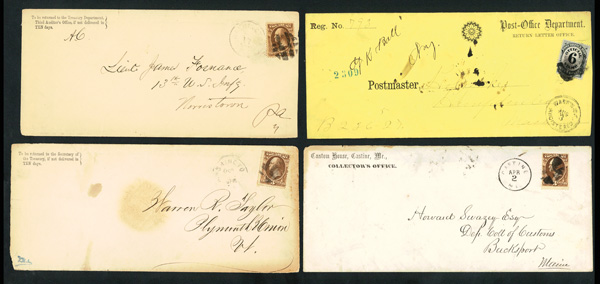 To be returned to the Treasury Department,
Third Auditor's Office, if not delivered in
TEN days.
AC
Lieut James Fornance
13th U.S. Infy
Norristown
Pa
Reg. No. 792
Post-Office Department.
RETURN LETTER OFFICE.
6
Postmaster
To be returned to the Secretary of
the Treasury, if not delivered in
TEN days.
Warren R. Taylor
Plymouth Union
Vt.
Custom House, Castine, Me.,
COLLECTOR'S OFFICE.
CASTINE
APR
2
Howard Swazey Esq
Dep Coll of Customs
Bucksport
Maine